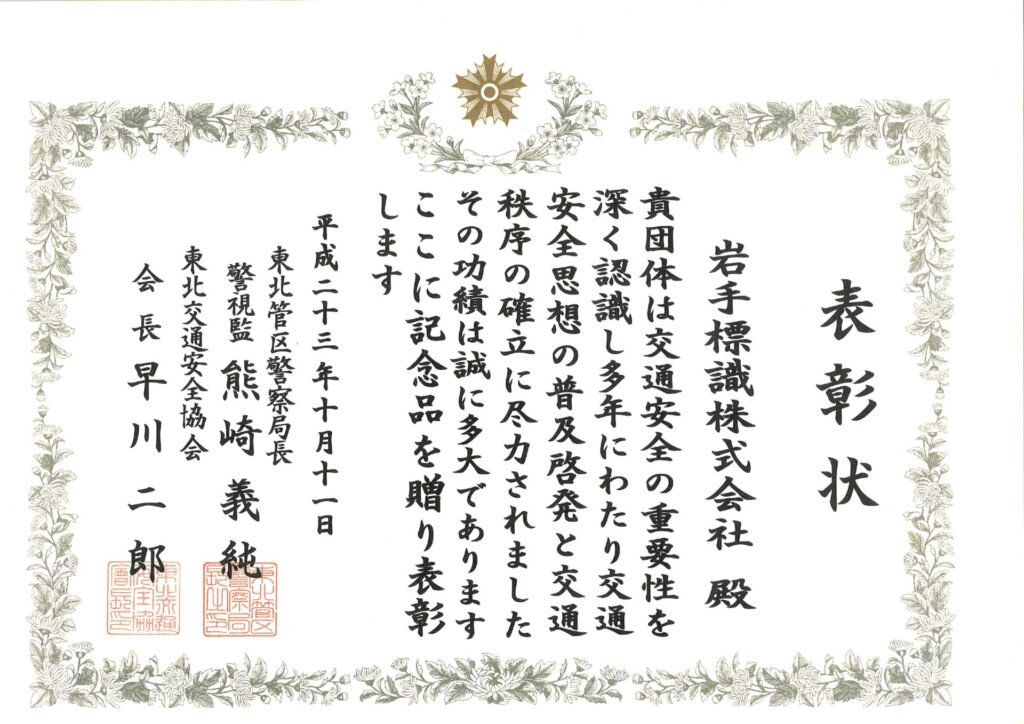 表彰状
岩手標識株式会社 殿
貴団体は交通安全の重要性を
深く認識し多年にわたり交通
安全思想の普及啓発と交通
秩序の確立に尽力されました
その功績は誠に多大であります
ここに記念品を贈り表彰
します
平成二十三年十月十一日
東北管区警察局長
警視監 熊崎義純
東北交通安全協会
会長 早川二郎